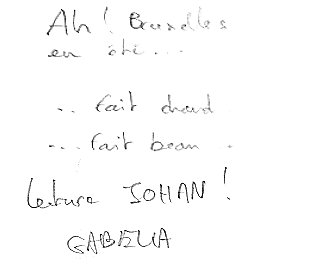 Ah ! Bruxelles
en été...
.. fait chaud
... fait beau ..
lecture JOHAN !
GABELIA